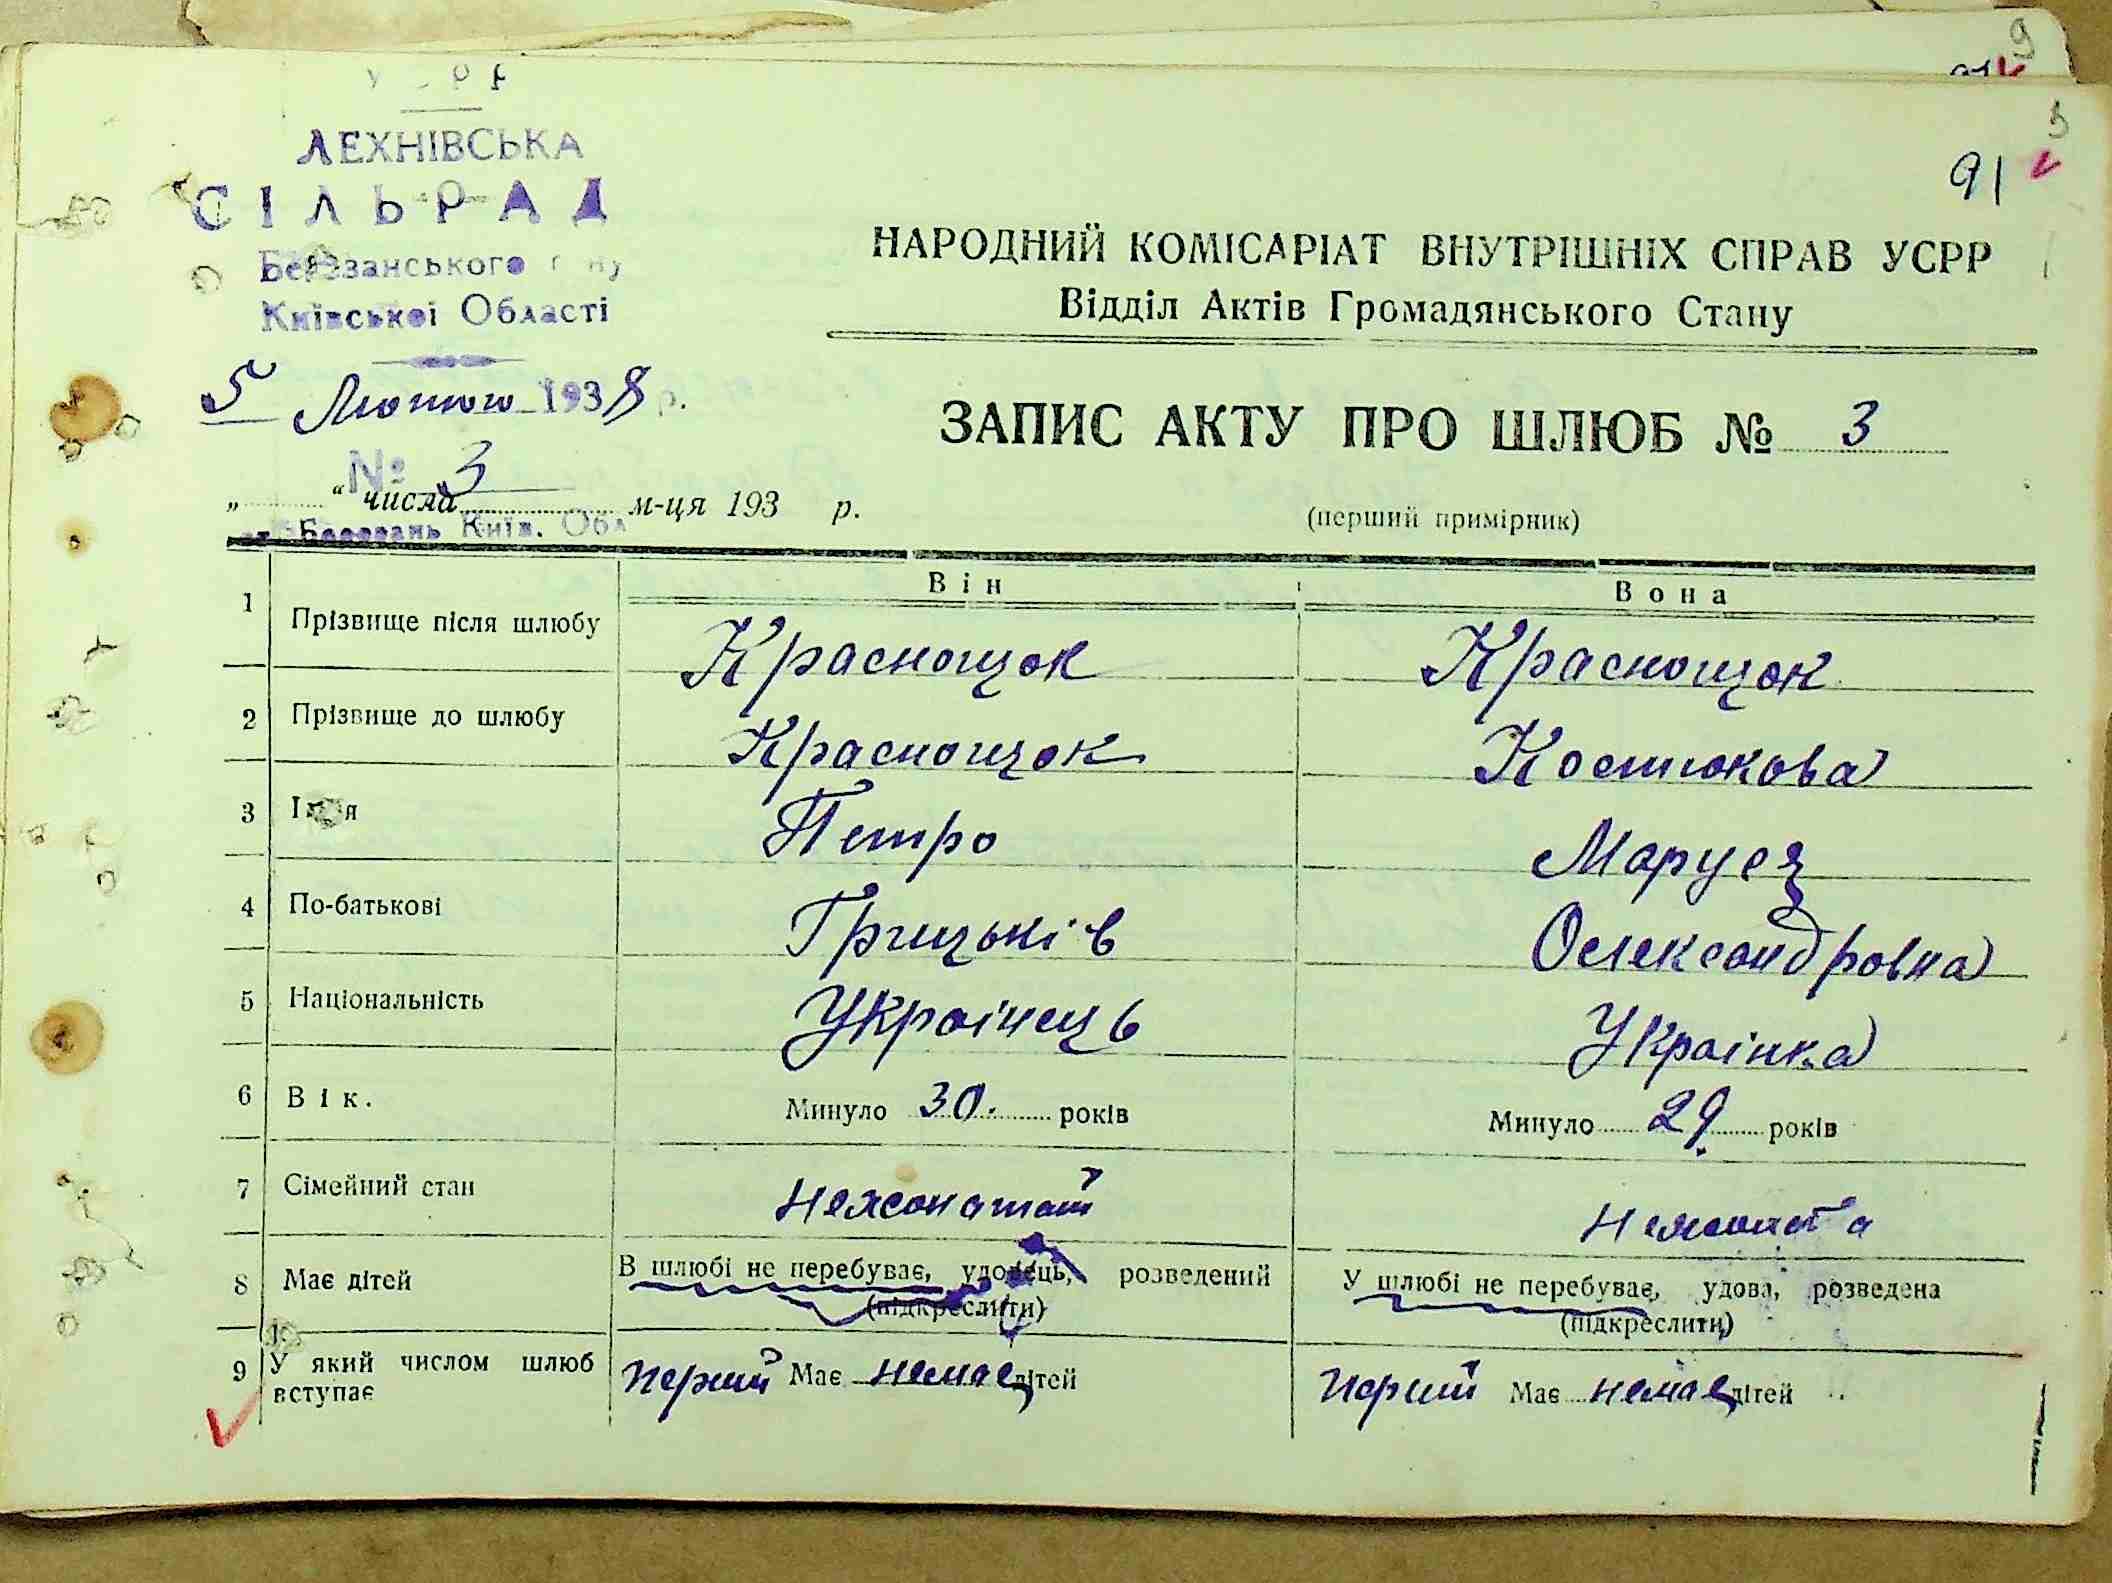 9
91
УСРР
3
ЛЕХНІВСЬКА
СІЛЬРАД
91
Березанського
Київської Області
НАРОДНИЙ КОМІСАРІАТ ВНУТРІШНІХ СПРАВ УСРР
Відділ Актів Громадянського Стану
5 Лютого 1938 р.
ЗАПИС АКТУ ПРО ШЛЮБ № 3
№ 3
„ “ числа м-ця 193 р.
(перший примірник)
ст. Березань Київ. Обл
Він Вона
1 Прізвище після шлюбу Краснощок Краснощок
2 Прізвище до шлюбу Краснощок Костюкова
3 Ім'я Петро Маруся
4 По-батькові Грицьків Олександровна
5 Національність Украінець Украінка
6 Вік. Минуло 30. років Минуло 29 років
7 Сімейний стан нежонатий нежоната
8 Має дітей В шлюбі не перебуває, удовець, розведений У шлюбі не перебуває, удова, розведена
(підкреслити) (підкреслити)
9 У який числом шлюб вступає перший Має немає дітей перший Має немає дітей